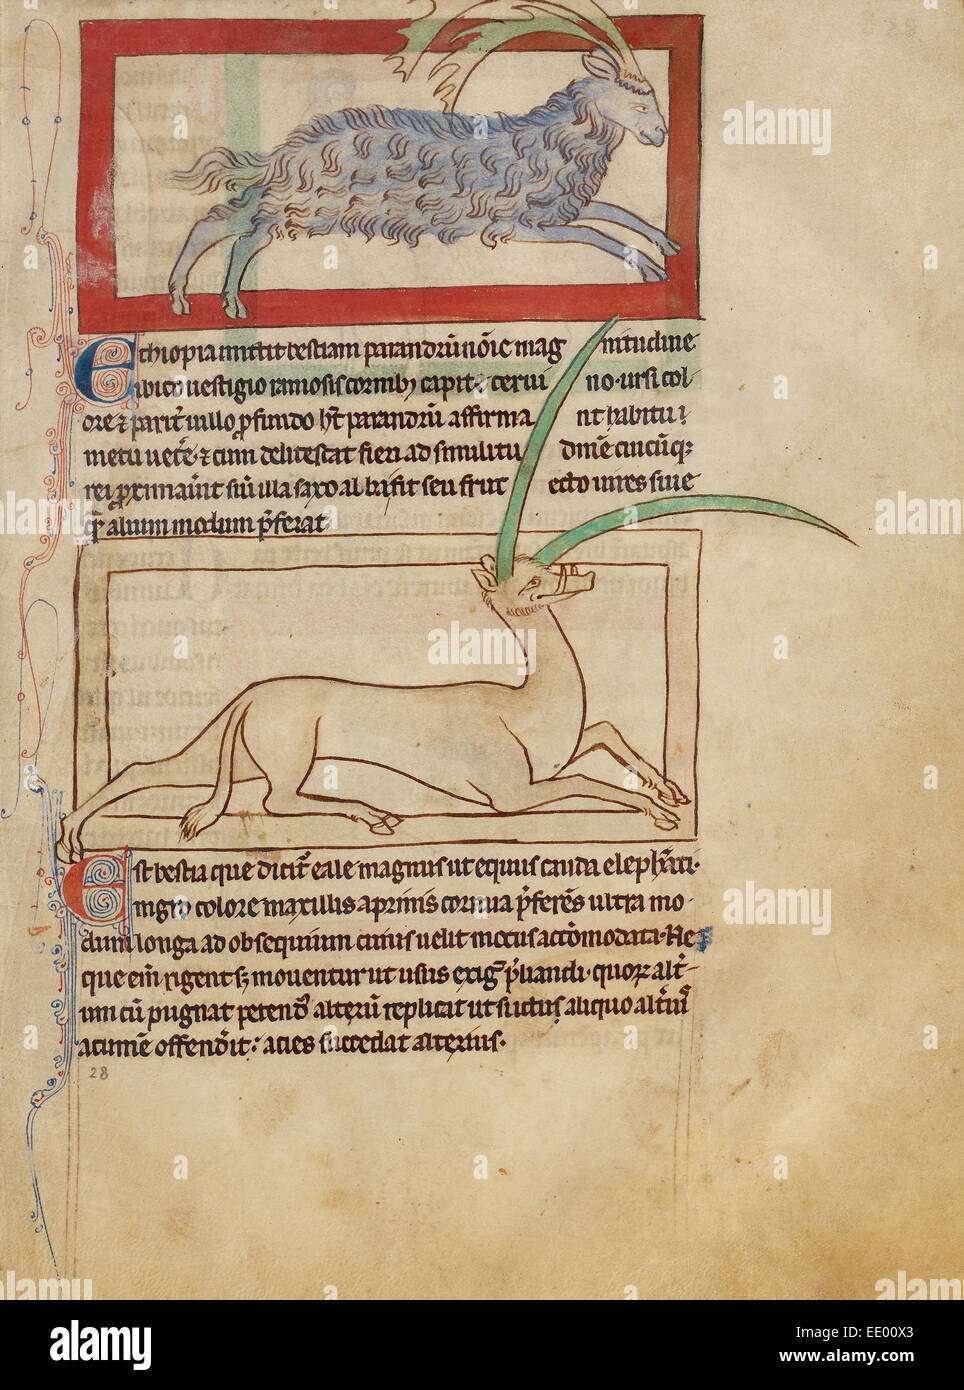 Ethiopia mittit bestiam parandrũ nõie mag nitudine
ibico uestigio ramosis cornibꝫ capite cerui no. ursi col
ore ⁊ parit̃ uillo ꝓfundo. hũc parandrũ affirma nt habitũ
metu uert̃e. ⁊ cum delitescat fieri ad similitu dinẽ cuicũqꝫ
rei ꝓximau̾it siue illa saxo alba sit seu frut ecto uires siue
alium modum p̃ferat
Est bestia que dicit̃ eale magnus ut equus cauda elephãti.
nigro colore maxillis aprinis cornua p̃ferẽs ultra mo-
dum longa ad obsequium cuius uelit motus accõmodata. Ne
que eñi rigent sꝫ mouentur ut usus exigit p̃liandi. quoꝝ alt̾-
um cũ pugnat p̃etendit alterũ replicat ut si ictus aliquo alt̾ius
acumẽ offendit̾. acies succedat alterius.
28
28
alamy
alamy
alamy
a
a
a
a
a
a
a
a
a
alamy
alamy
alamy
a
a
a
alamy
alamy
alamy
alamy
Image ID: EE00X3
www.alamy.com